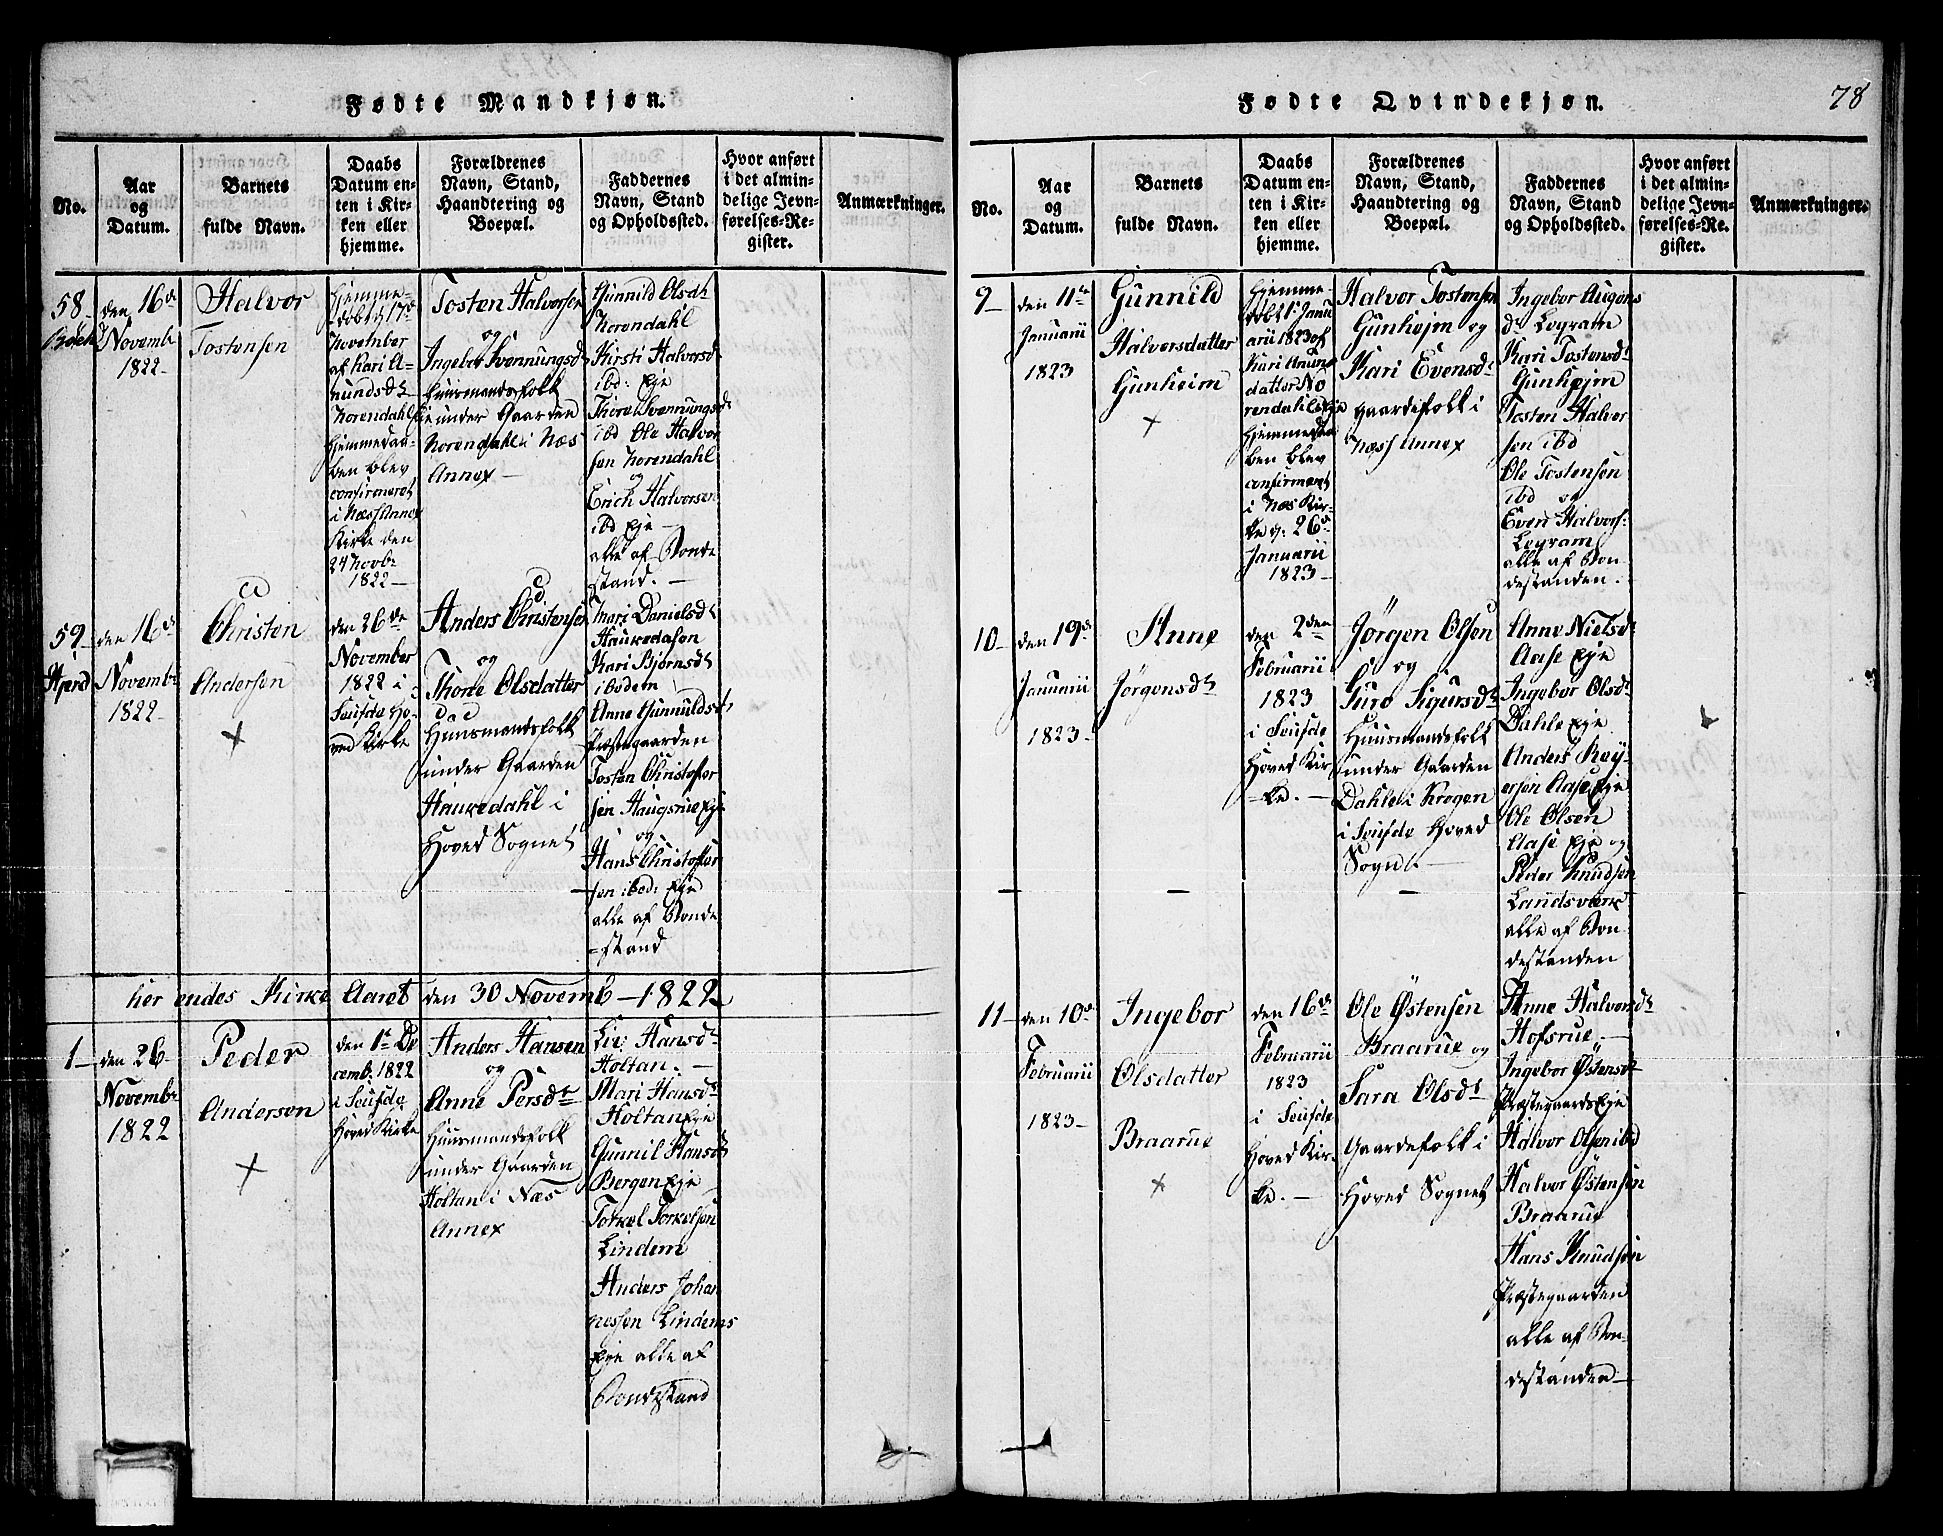 Fødte Mandkjøn.
No.
Aar
og
Datum.
Barnets
fulde Navn.
Daabs
Datum en-
ten i Kir-
ken eller
hjemme.
Forældrenes
Navn, Stand,
Haandtering og
Boepæl.
Faddernes
Navn, Stand
og Opholdssted.
Hvor anført
i det almin-
delige Jevn-
førelses-Re-
gister.
Anmærkninger.
58
den 16de
Novembr
1822
Halvor
Tostensen
Hjemme-
døbt d 17de
November
af Kari A-
mundsdt
Norendahl Eie
Hjemmedaa-
ben blev
confirmeret
i Næss Annex
Kirke den
24 Novbr
1822
Tosten Halvorsen
og
Ingebor Svennungsd
Huusmandsfolk
under Gaarden
Norendahl i Næs
Annex
Gunnild Olsdt
Norendahl
Kirsti Halvorsd
ibd: Eje
Thore Svennungsd
ibd Ole Halvor
sen Norendahl
og
Erich Halvorsen
ibd Eje
alle af Bonde
stand.
59
den 16de
Novembr
1822
Christen
Andersen
den 26de
November
1822 i
Soufde Ho-
ved Kirke
Anders Christensen
og
Thone Olsdatter
Huusmandsfolk
under Gaarden
Haukedahl i
Hoved Sognet
Mari Danielsdt
Haukedalen
Kari Bjørnsdt
ibodem
Anne Gunnuldsdt
Præstegaarden
Tosten Christofer
sen Haugsrue Eje
og
Hans Christofer
sen ibod: Eje
alle af Bonde
=stand
her endes Kirke Aaret den 30 Novemb - 1822
1
den 26
Novembr
1822
Peder
Anderson
den 1te De
cemb. 1822
i Soufde
Hoved Kirke
Anders Hansen
og
Anne Persdtr
Huusmandsfolk
under Gaarden
Holtan i Næs
Annex
Liv Hansdr
Holtan.
Mari Hansdr
Holtan Eje
Gunnil Hansd
Bergen Eje
Torkel Torkelsen
Lindem
Anders Johan
nessen Lindems
Eje alle af
Bondestand
Fødte Qvindekjøn.
78
No.
Aar
og
Datum.
Barnets
fulde Navn.
Daabs
Datum en-
ten i Kir-
ken eller
hjemme.
Forældrenes
Navn, Stand,
Haandtering og
Boepæl.
Faddernes
Navn, Stand
og Opholdssted.
Hvor anført
i det almin-
delige Jevn-
førelses-Re-
gister.
Anmærkninger.
9
den 11te
Januarii
1823
Gunnild
Halvorsdatter
Gunheim
Hjemme-
døbt 1 Janu
arii 1823 af
Kari Amuns
datter No
rendahls Eje
Hjemmedaa
ben blev
confirmeret
i Næs Kir-
ke d: 26de
Januarii
1823
Halvor Tostensen
Gunhejm og
Kari Evensdt
gaardefolk i
Næss Annex
Ingebor Augons
dr Legram
Kari Tostensdt
Gunhejm
Tosten Halvor
sen ibd
Ole Tostensen
ibd og
Even Halvors:
Legram
alle af Bon
destanden.
10
den 19de
Januarii
1823
Anne
Jørgensdt
den 2den
Februarii
1823
i Soufde
Hoved Kir
=ke.
Jørgen Olsen
og
Guro Sigursdt
Huusmandsfolk
under Gaarden
Dahle i Krogen
i Soufde Hoved
Sogn.
Anne Nielsdr
Aase Eje
Ingebor Olsdr
Dahle Eje
Anders Røy
ersen Aase Eje
Ole Olsen
Aase Eje og
Peder Knudsen
Landsværk
alle af Bon
destanden
11
den 10de
Februarii
1823
Ingebor
Olsdatter
Braarue
den 16de
Februarii
1823
i Soufde
Hoved Kir-
ke.
Ole Østensen
Braarue og
Sara Olsdt
Gaardefolk i
Hoved Sognet
Anne Halvorsdt
Hofsrue
Ingebor Østensdr
Præstegaards Eje
Halvor Olsen ibd
Halvor Østensen
Braarue
Hans Knudsen
Præstegaarden
alle af Bon-
destanden